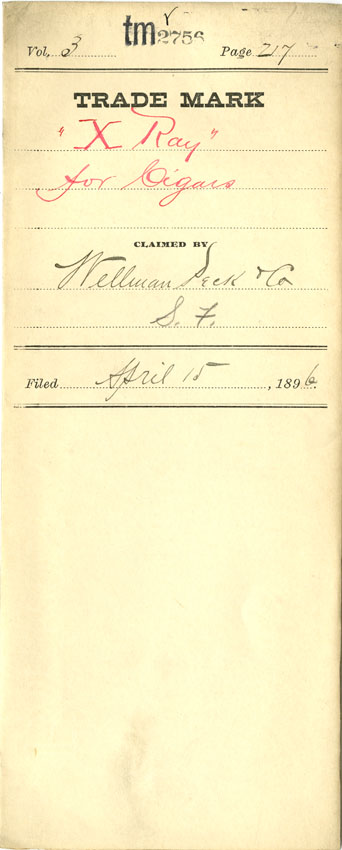 tm 2756
Vol. 3 Page 217
TRADE MARK
"X Ray"
for Cigars
CLAIMED BY
Wellman Peck & Co
S. F.
Filed April 15, 1896.